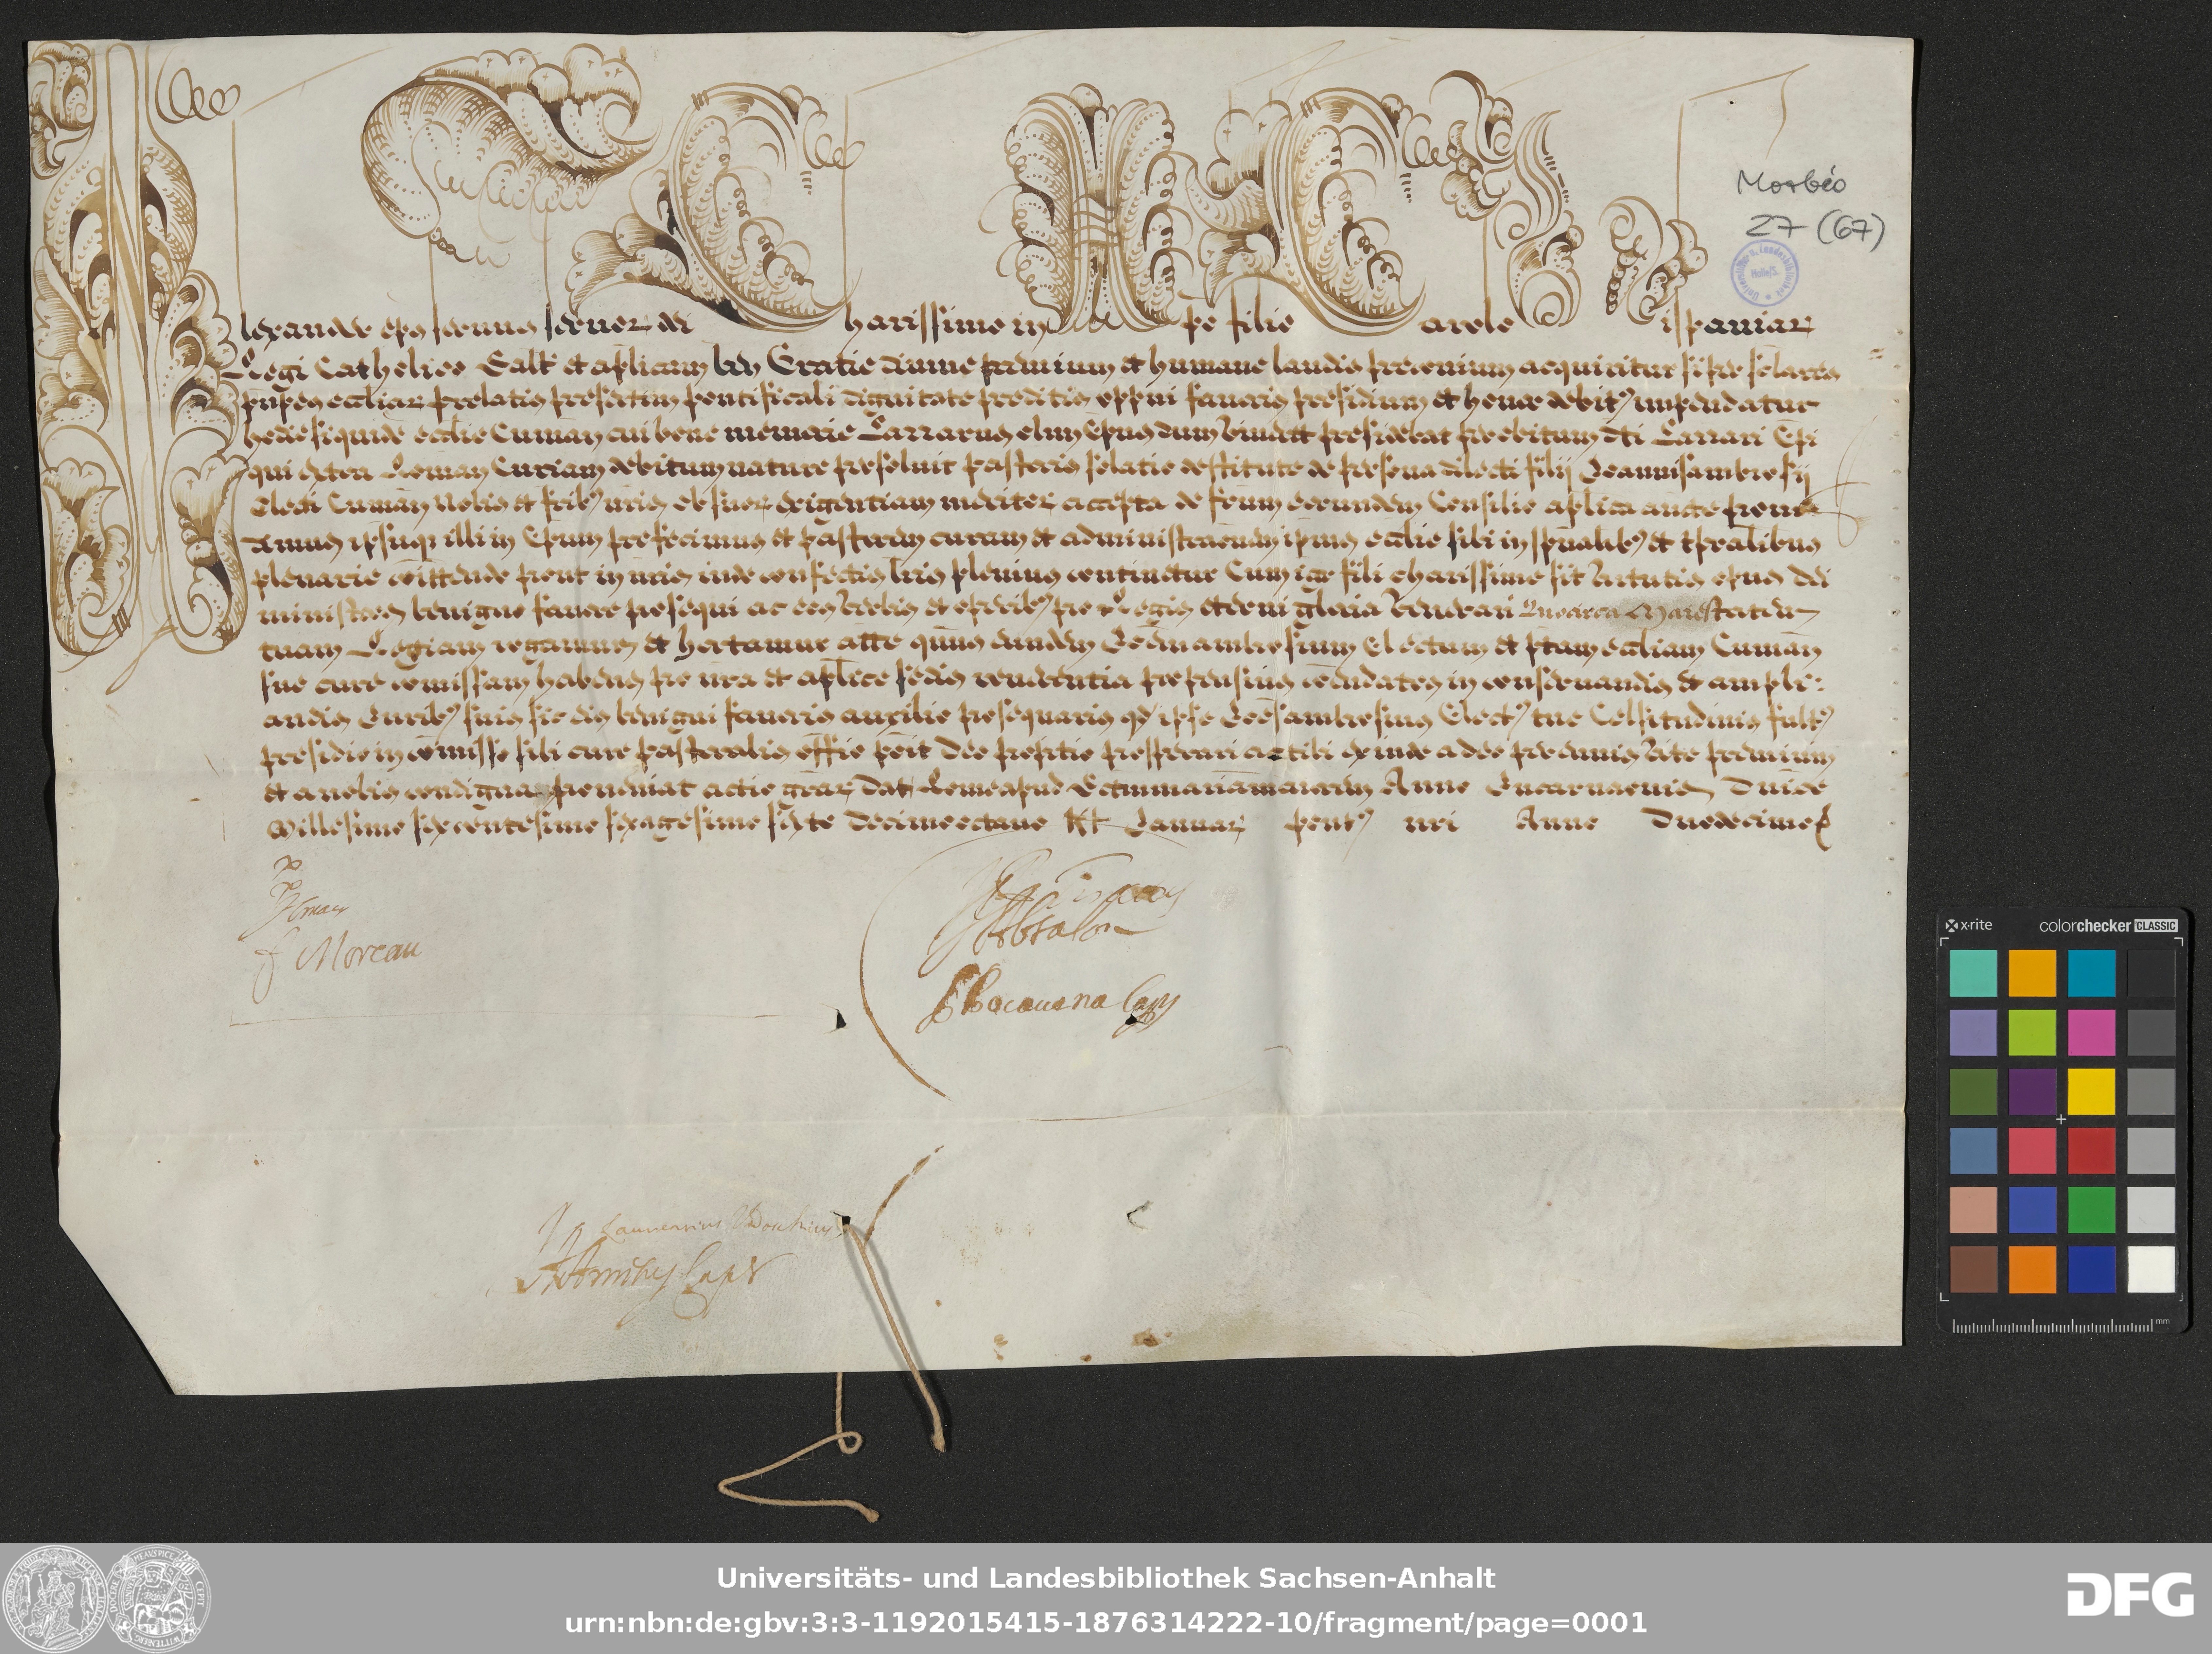 Morbio
27 (67)
lexander eps seruus seruor dei harissime in xpe filie arole ispaniar
Regi Catholico Salt et aplicam ben Gratie diuine premium et humane laudis preconium acquiritur si per seculares
prnpes eccliar prelatis presertim pontificali dignitate preditis oppni fauoris presidium et honor debit impendatur
hodie siquide ecclie Cuman cui bone memorie Lazzarus olim Epus dum viueret presidebat per obitum dti Lazzari Epi
qui extra Roman Curiam debitum nature persoluit pastoris solatio destitute de persona dilecti filij Joannisambrosij
Electi Cuman nobis et frib nris ob suor exigentiam meritor accepta de frum eorundem Consilio aplica aucte proui
dimus ipsumq illi in Epum prefecimus et pastorem curam et administraonem ipsius ecclie sibi in spualib et tpralibus
plenarie comittendo prout in nris inde confectis lris plenius continetur Cum igr fili charissime sit virtutis opus Dei
ministros benigno fauore prosequi ac eos verbis et operib pro Regis eterni gloria venerari Quocirca Maiestatem
tuam Regiam rogamus et hortamur atte quus eundem Joanambrosium Electum et ptam eccliam Cuman
sue cure comissam habens pro nra et aplice sedis reuerentia propensius comendatos in conseruandis et ampli:
andis Juribus suis sic eos benigni fauoris auxilio prosequaris qd ipse Joesambrosius Elect tue Celsitudinis fult
presidio in comisso sibi cure pastoralis offio possit Deo propitio prosperari ac tibi exinde a deo perennis vite premium
et a nobis condigna proueniat actio grar Dat Rome apud Sctammariammaiorem Anno Incarnaonis Dnice
Millesimo sexcentesimo sexagesimo sexto decimooctauo Kl Januar Pont nri Anno Duodecimo
f Moreau
Absalon
x-rite colorchecker CLASSIC
mm
Universitäts- und Landesbibliothek Sachsen-Anhalt
urn:nbn:de:gbv:3:3-1192015415-1876314222-10/fragment/page=0001
DFG